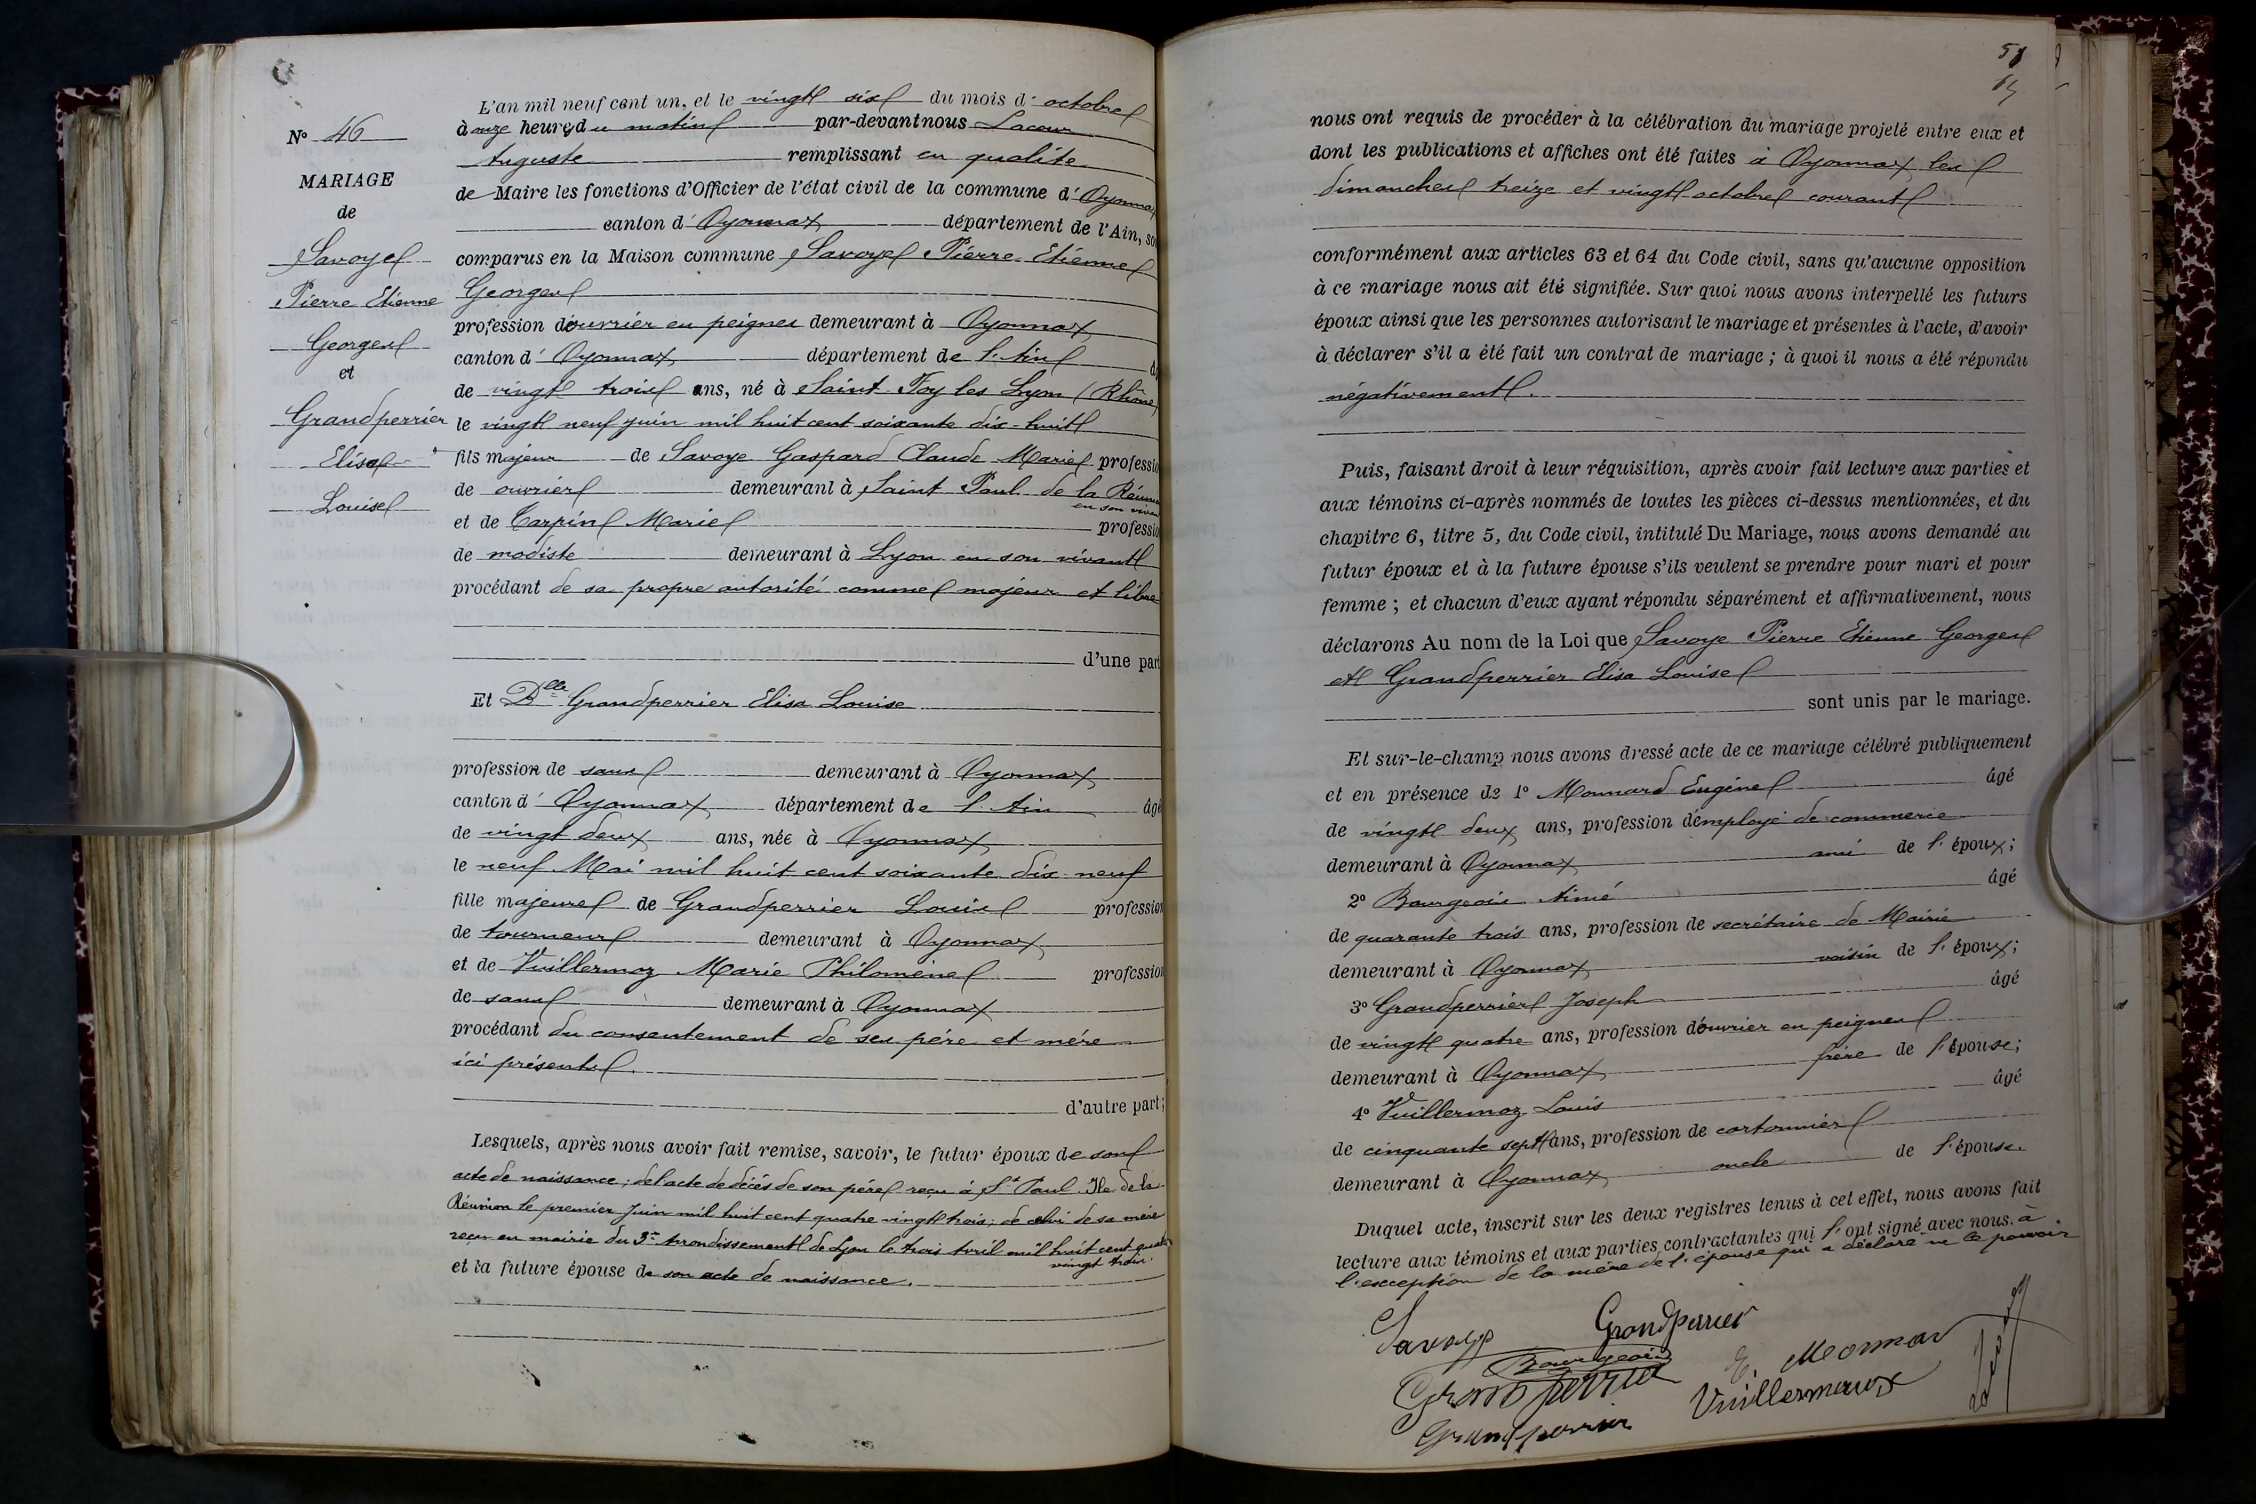 N° 46
MARIAGE
de
Savoye
Pierre Etienne
Georges
et
Grandperrier
Elisa
Louise
L'an mil neuf cent un, et le vingt six du mois d'octobre
à onze heures du matin par-devant nous Lacour
Auguste remplissant en qualité
de Maire les fonctions d'Officier de l'état civil de la commune d'Oyonnax
canton d'Oyonnax département de l'Ain, son
comparus en la Maison commune Savoye Pierre Etienne
Georges
profession d'ouvrier en peignes demeurant à Oyonnax
canton d'Oyonnax département de l'Ain
de vingt trois ans, né à Saint Foy les Lyon (Rhône)
le vingt neuf juin mil huit cent soixante dix-huit
fils majeur de Savoye Gaspard Claude Marie profession
de ouvrier demeurant à Saint Paul de la Réunion
en son vivant
et de Tarpin Marie profession
de modiste demeurant à Lyon en son vivant
procédant de sa propre autorité comme majeur et libre
d'une part
Et Dlle Grandperrier Elisa Louise
profession de sans demeurant à Oyonnax
canton d'Oyonnax département de l'Ain âgé
de vingt deux ans, née à Oyonnax
le neuf Mai mil huit cent soixante dix neuf
fille majeure de Grandperrier Louis profession
de tourneur demeurant à Oyonnax
et de Vuillermoz Marie Philomène profession
de sans demeurant à Oyonnax
procédant du consentement de ses père et mère
ici présents.
d'autre part;
Lesquels, après nous avoir fait remise, savoir, le futur époux de son
acte de naissance; de l'acte de décès de son père reçu à St Paul Ile de la
Réunion le premier Juin mil huit cent quatre vingt trois; de celui de sa mère
reçu en mairie du 3me Arrondissement de Lyon le trois Avril mil huit cent quatre
vingt trois.
et la future épouse de son acte de naissance.
51
nous ont requis de procéder à la célébration du mariage projeté entre eux et
dont les publications et affiches ont été faites à Oyonnax les
dimanches treize et vingt octobre courant
conformément aux articles 63 et 64 du Code civil, sans qu'aucune opposition
à ce mariage nous ait été signifiée. Sur quoi nous avons interpellé les futurs
époux ainsi que les personnes autorisant le mariage et présentes à l'acte, d'avoir
à déclarer s'il a été fait un contrat de mariage; à quoi il nous a été répondu
négativement.
Puis, faisant droit à leur réquisition, après avoir fait lecture aux parties et
aux témoins ci-après nommés de toutes les pièces ci-dessus mentionnées, et du
chapitre 6, titre 5, du Code civil, intitulé Du Mariage, nous avons demandé au
futur époux et à la future épouse s'ils veulent se prendre pour mari et pour
femme; et chacun d'eux ayant répondu séparément et affirmativement, nous
déclarons Au nom de la Loi que Savoye Pierre Etienne Georges
et Grandperrier Elisa Louise
sont unis par le mariage.
Et sur-le-champ nous avons dressé acte de ce mariage célébré publiquement
et en présence de 1° Monnard Eugène âgé
de vingt deux ans, profession d'employé de commerce
demeurant à Oyonnax ami de l'époux;
2° Bourgeois Aimé âgé
de quarante trois ans, profession de secrétaire de Mairie
demeurant à Oyonnax voisin de l'époux;
3° Grandperrier Joseph âgé
de vingt quatre ans, profession d'ouvrier en peignes
demeurant à Oyonnax frère de l'épouse;
4° Vuillermoz Louis âgé
de cinquante sept ans, profession de cartonnier
demeurant à Oyonnax oncle de l'épouse.
Duquel acte, inscrit sur les deux registres tenus à cet effet, nous avons fait
lecture aux témoins et aux parties contractantes qui l'ont signé avec nous. à
l'exception de la mère de l'épouse qui a déclaré ne le pouvoir
Savoye Grandperrier
Bourgeois E. Monnar
Grandperrier Vuillermoux
Grandperrier